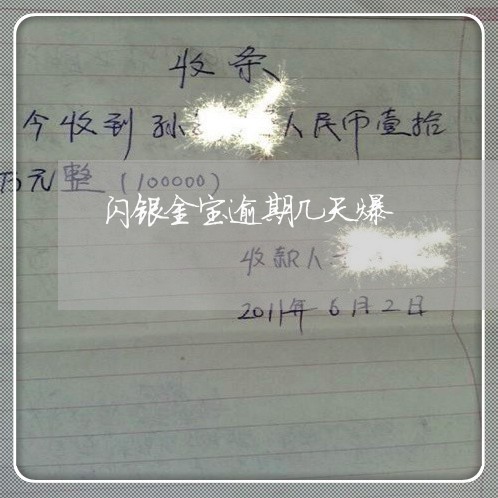 收条
今收到孙 人民币壹拾
万元整（100000）
闪银金宝逾期几天爆
收款人
2011年6月2日